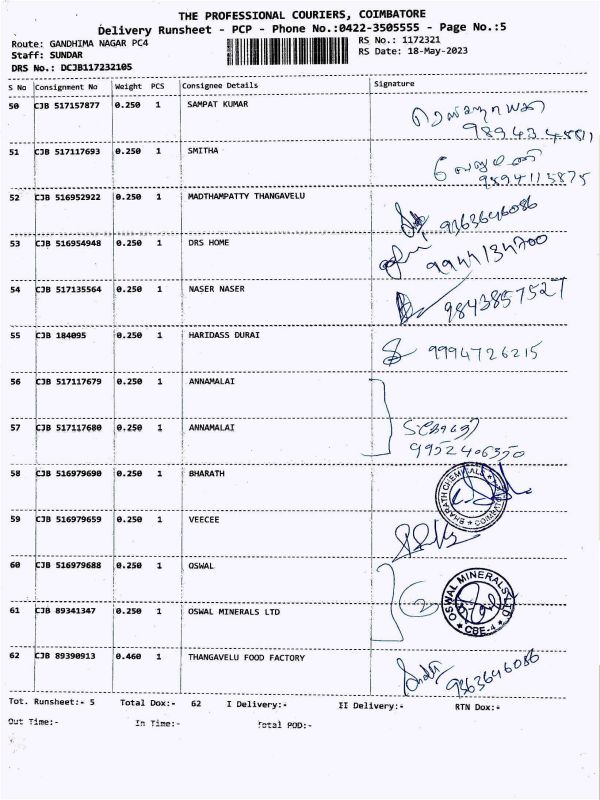 THE PROFESSIONAL COURIERS, COIMBATORE
Delivery Runsheet - PCP - Phone No.:0422-3505555 - Page No.:5
Route: GANDHIMA NAGAR PC4 RS No.: 1172321
Staff: SUNDAR RS Date: 18-May-2023
DRS No.: DCJB117232105
S No Consignment No Weight PCS Consignee Details Signature
50 CJB 517157877 0.250 1 SAMPAT KUMAR
51 CJB 517117693 0.250 1 SMITHA
9894115875
52 CJB 516952922 0.250 1 MADTHAMPATTY THANGAVELU
9363646086
53 CJB 516954948 0.250 1 DRS HOME
9944134700
54 CJB 517135564 0.250 1 NASER NASER
9843857527
55 CJB 184095 0.250 1 HARIDASS DURAI
9994726215
56 CJB 517117679 0.250 1 ANNAMALAI
57 CJB 517117680 0.250 1 ANNAMALAI
9952406350
58 CJB 516979690 0.250 1 BHARATH
BHARATH CHEMICALS COIMBATORE
59 CJB 516979659 0.250 1 VEECEE
60 CJB 516979688 0.250 1 OSWAL
OSWAL MINERALS LTD
CBE-4
61 CJB 89341347 0.250 1 OSWAL MINERALS LTD
62 CJB 89390913 0.460 1 THANGAVELU FOOD FACTORY
9363646086
Tot. Runsheet:- 5 Total Dox:- 62 I Delivery:- II Delivery:- RTN Dox:-
Out Time:- In Time:- Total POD:-